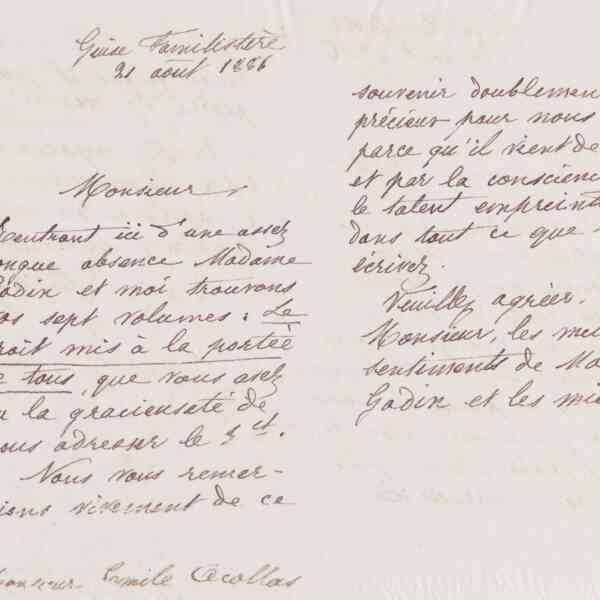 Guise Familistère
21 août 1886
Monsieur,
Rentrant ici d'une assez
longue absence Madame
Godin et moi trouvons
vos sept volumes : Le
droit mis à la portée
de tous, que vous avez
eu la gracieuseté de
nous adresser le 3 ct.
Nous vous remer-
cions vivement de ce
Monsieur Emile Acollas
souvenir doublement
précieux pour nous
parce qu'il vient de
et par la conscience
le talent empreint
dans tout ce que
écrivez.
Veuillez agréer,
Monsieur, les mei
sentiments de Ma
Godin et les mie